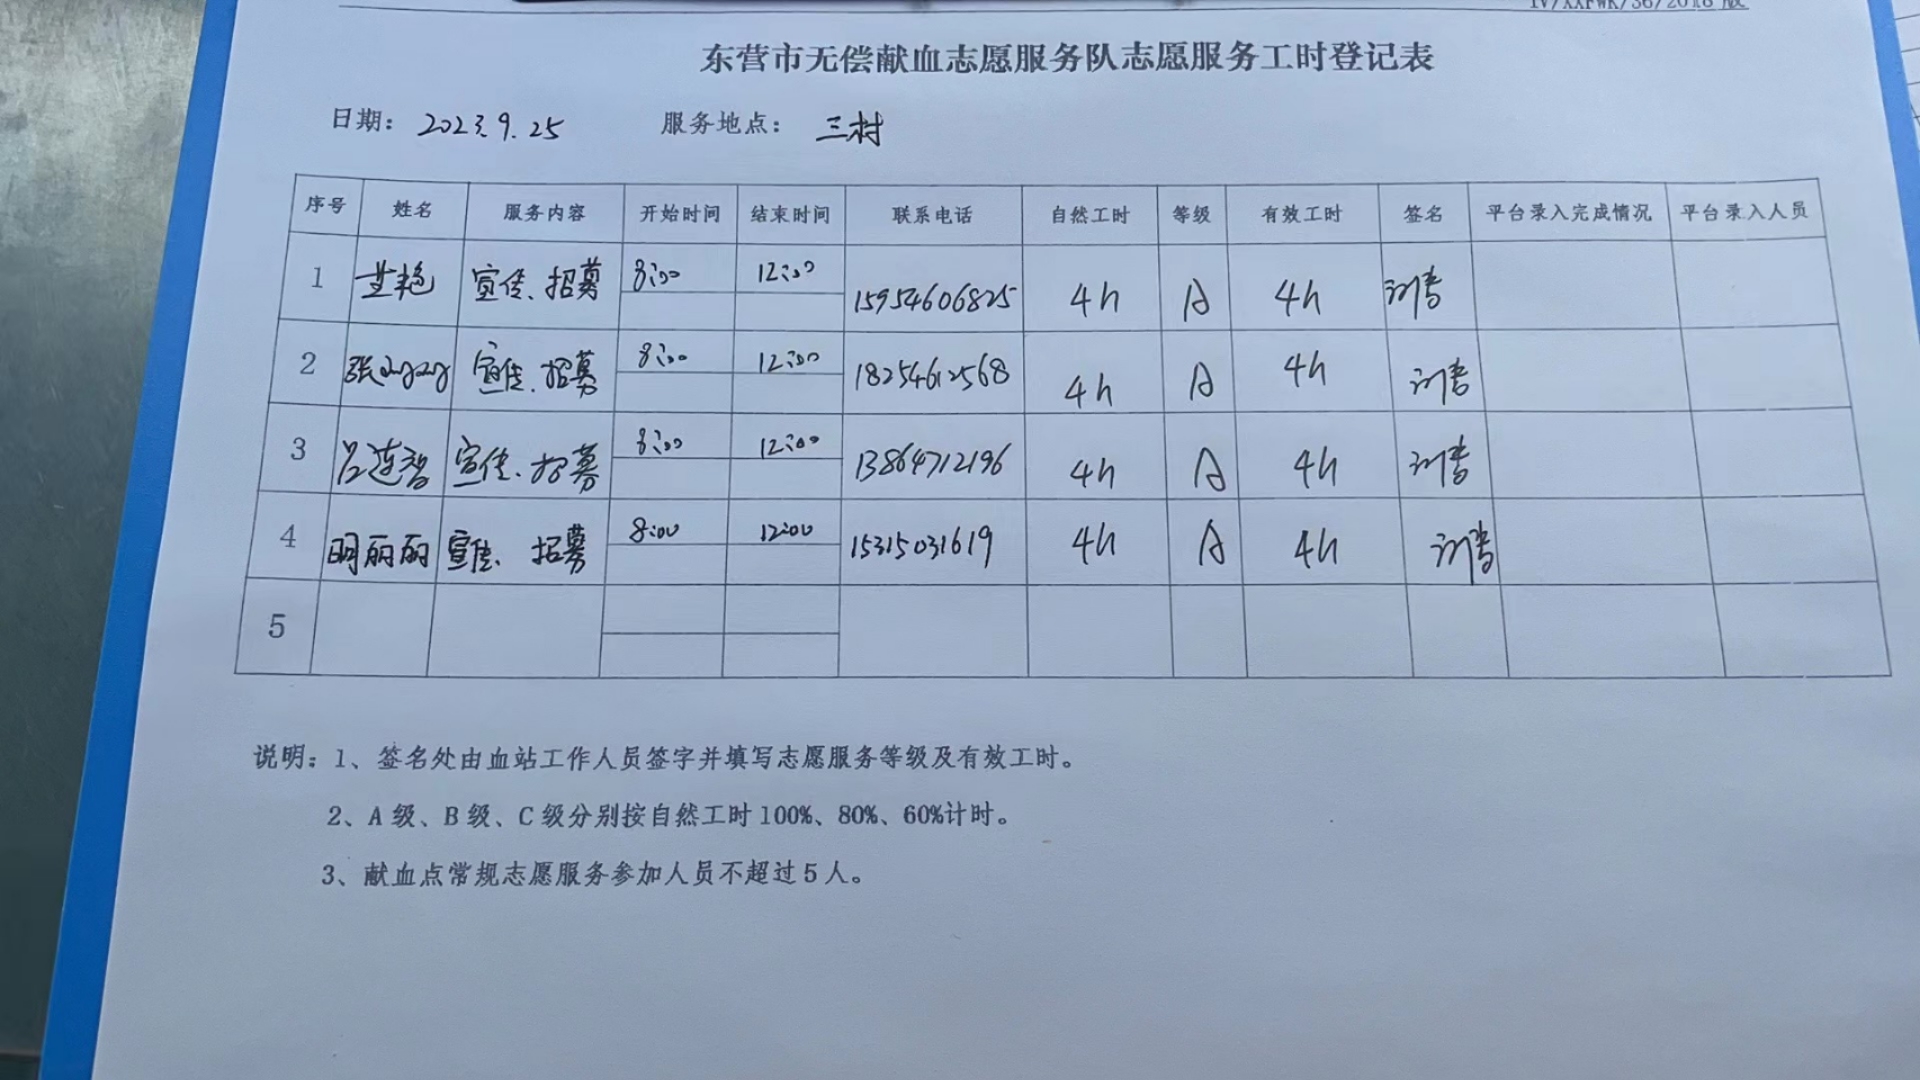 东营市无偿献血志愿服务队志愿服务工时登记表
日期: 2023.9.25 服务地点: 三村
序号 姓名 服务内容 开始时间 结束时间 联系电话 自然工时 等级 有效工时 签名 平台录入完成情况 平台录入人员
1 宣传、招募 8:00 12:00 15954606825 4h A 4h
2 张 宣传、招募 8:00 12:00 18254612568 4h A 4h
3 吕连智 宣传、招募 8:00 12:00 13864712196 4h A 4h
4 明丽丽 宣传、招募 8:00 12:00 15315031619 4h A 4h
5
说明: 1、签名处由血站工作人员签字并填写志愿服务等级及有效工时。
2、A级、B级、C级分别按自然工时100%、80%、60%计时。
3、献血点常规志愿服务参加人员不超过5人。